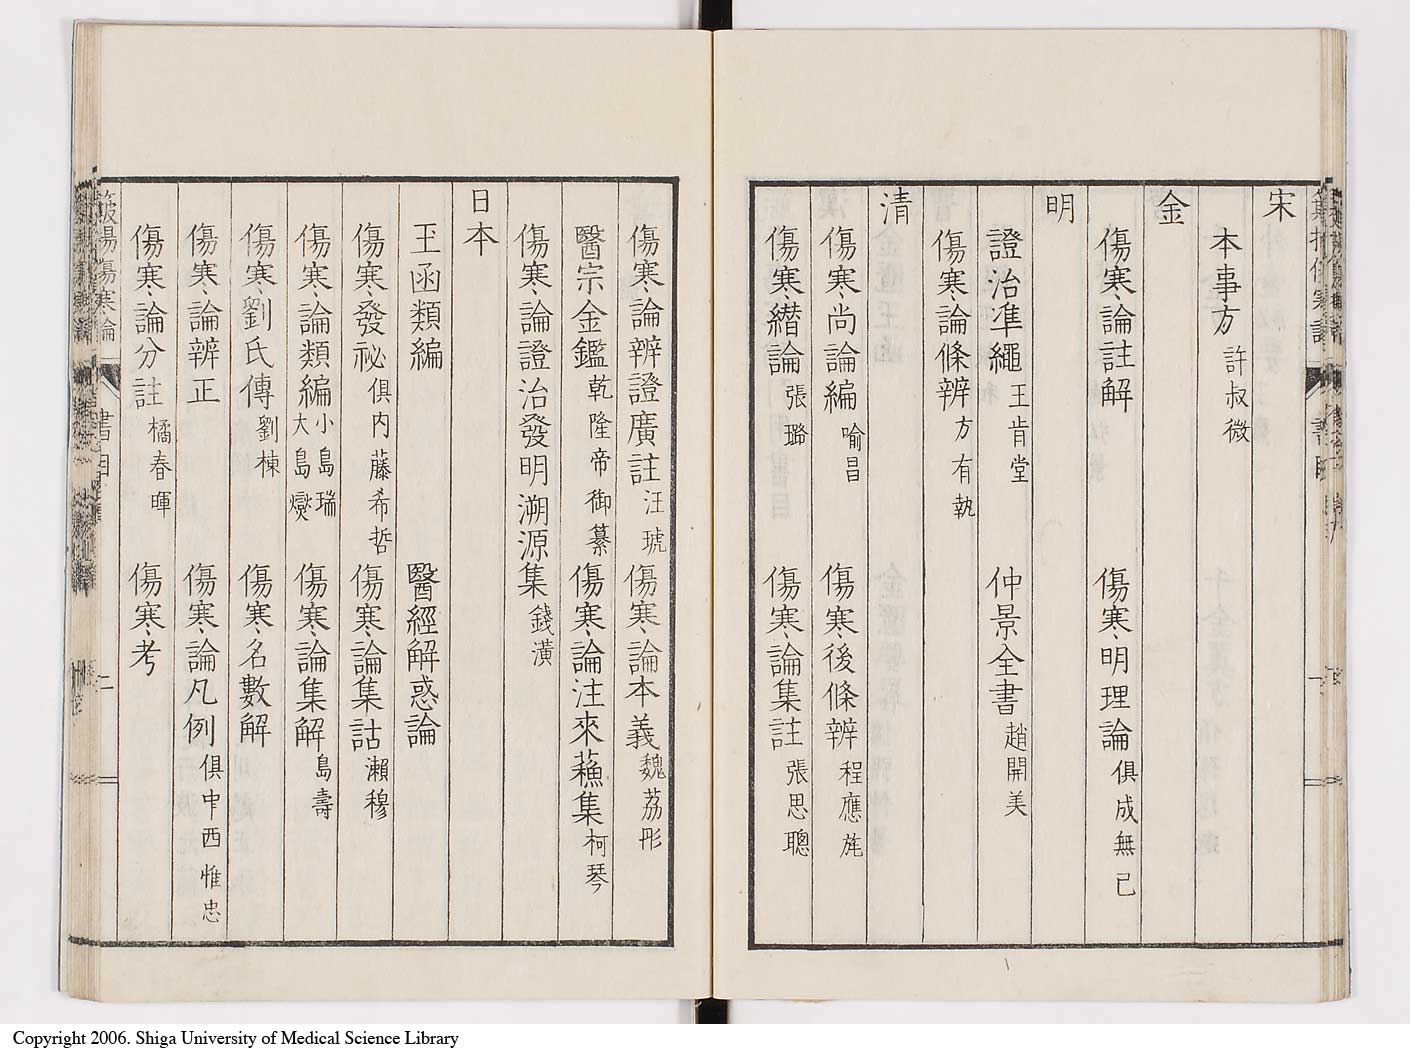 宋
本事方 許叔微
金
傷寒論註解 傷寒明理論 俱成無已
明
證治準繩 王肯堂 仲景全書 趙開美
傷寒論條辨 方有執
清
傷寒尚論編 喻昌 傷寒後條辨 程應旄
傷寒纘論 張璐 傷寒論集註 張思聰
傷寒論辨證廣註 汪琥 傷寒論本義 魏荔彤
醫宗金鑑 乾隆帝御纂 傷寒論注來蘓集 柯琴
傷寒論證治發明溯源集 錢潢
日本
玉函類編 醫經解惑論
傷寒發祕 俱内藤希哲 傷寒論集詁 瀨穆
傷寒論類編 小島瑞 大島燮 傷寒論集解 島壽
傷寒劉氏傳 劉棟 傷寒名數解
傷寒論辨正 傷寒論凡例 俱中西惟忠
傷寒論分註 橘春暉 傷寒考
傷寒論 書目 二
Copyright 2006. Shiga University of Medical Science Library